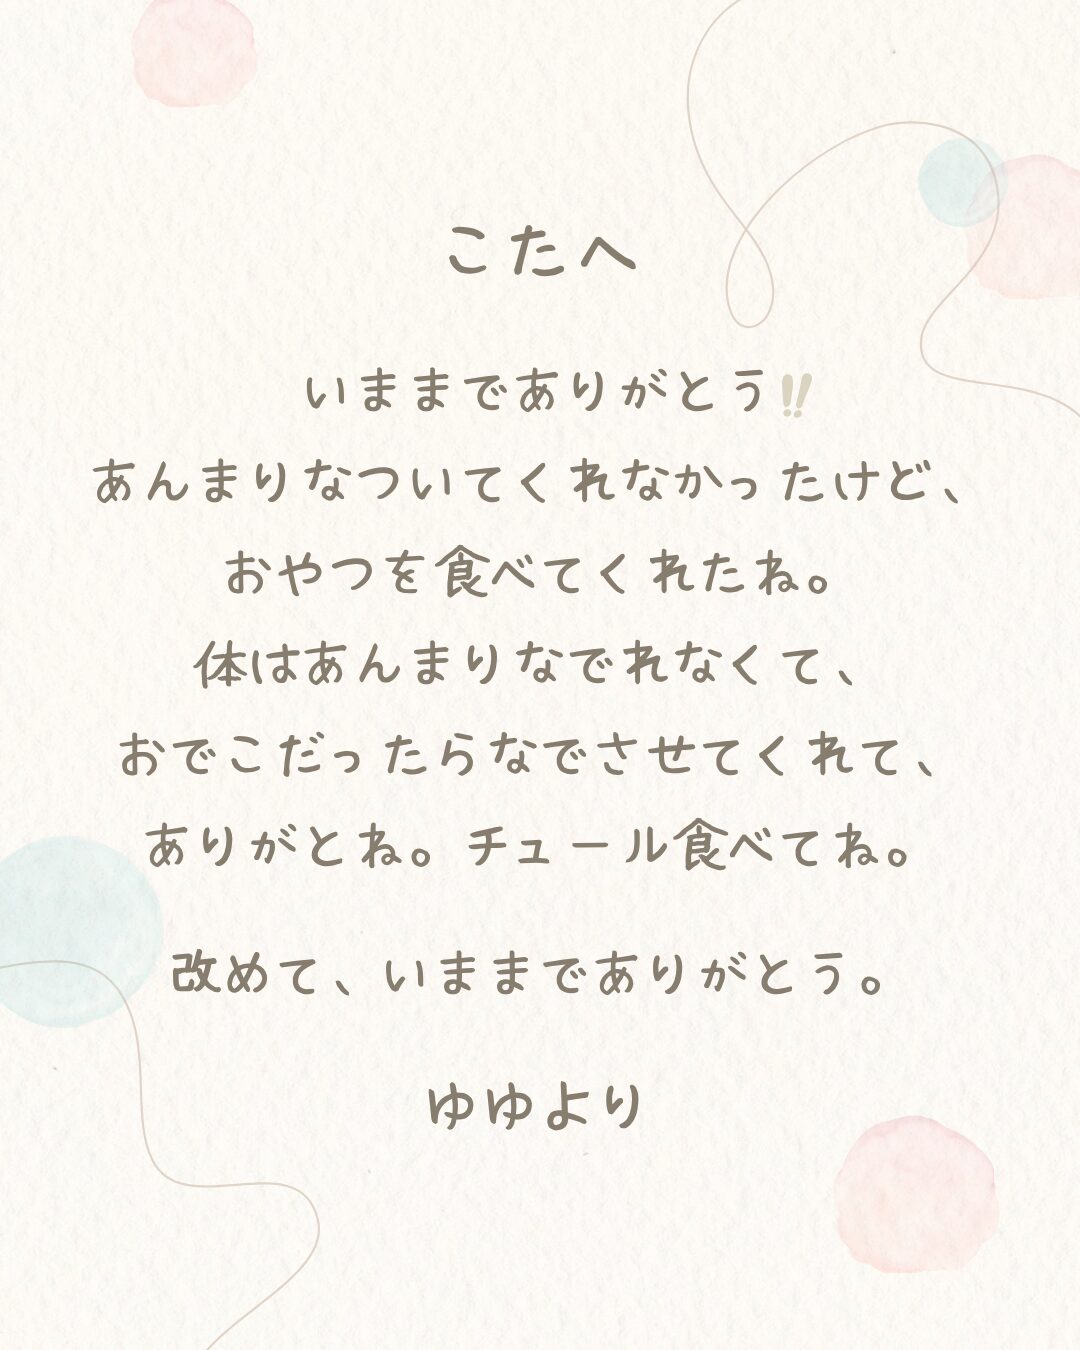 こたへ
いままでありがとう‼
あんまりなついてくれなかったけど、
おやつを食べてくれたね。
体はあんまりなでれなくて、
おでこだったらなでさせてくれて、
ありがとね。チュール食べてね。
改めて、いままでありがとう。
ゆゆより